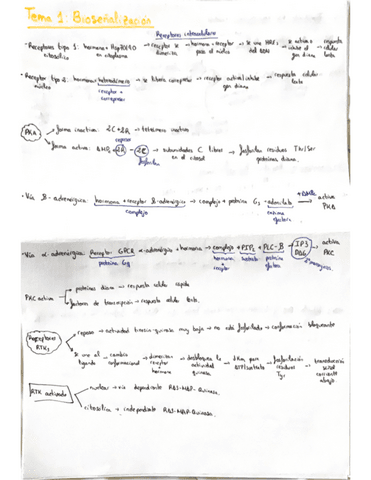 Tema 1: Bioseñalización
Receptores intracelulares
· Receptores tipo 1: hormona + Hsp70/90 → receptor se → hormona + receptor → se une HREs → se activa o → respuesta
citosólico en citoplasma dimeriza para el núcleo del DNA inhibe el celular
gen diana lenta
· Receptor tipo 2: hormona + heterodímero → se libera correpresor → receptor activa/inhibe → respuesta celular
núcleo receptor + gen diana lenta
correpresor
PKA
forma inactiva: 2C + 2R → tetrámero inactivo
forma activa: AMPc + 2R - 2C → subunidades C libres → fosforilan residuos Thr/Ser
en el citosol proteínas diana.
· Vía β-adrenérgica: hormona + receptor β-adrenérgico → complejo + proteína Gs → adenilato → activa
complejo enzima PKA
efectora
· Vía α-adrenérgica: Receptor GPCR α-adrenérgico + hormona → complejo + PIP2 + PLC-β → IP3 activa
proteína Gq hormona sustrato proteína DAG PKC
+ efectora 2º mensajeros.
receptor
PKC activa → proteínas diana → respuesta celular rápida
→ factores de transcripción → respuesta celular lenta.
Receptores
RTKs
reposo → actividad tirosin-quinasa muy baja → no está fosforilado → conformación bloqueante
se une al → cambio → dimerizan → desbloquea la → ↓Km para → fosforilación → transducción
ligando conformacional receptor actividad ATP/sustrato residuos señal
quinasa Tyr
RTK activado
nuclear → vía dependiente RAS-MAP-Quinasa.
citosólica → independiente RAS-MAP-Quinasa.